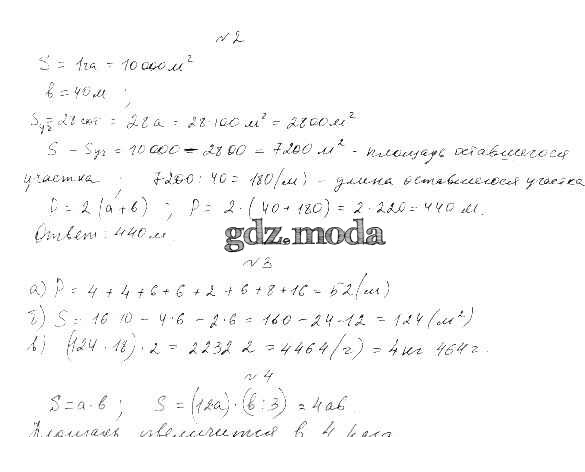 №2
S = 1га = 10000 м²
в = 40м ;
Sуч = 28 сот = 28а = 28·100 м² = 2800 м²
S − Sуч = 10000 − 2800 = 7200 м² - площадь оставшегося
участка ; 7200 : 40 = 180 (м) - длина оставшегося участка
P = 2 (а+в) ; P = 2 · (40 + 180) = 2 · 220 = 440 м.
Ответ: 440 м.
gdz.moda
№3
а) P = 4 + 4 + 6 + 6 + 2 + 6 + 8 + 16 = 52 (м)
б) S = 16·10 − 4·6 − 2·6 = 160 − 24 - 12 = 124 (м²)
в) (124 · 18) · 2 = 2232·2 = 4464 (г) = 4кг 464г.
№4
S = а·в ; S = (12а)·(в:3) = 4ав.
Площадь увеличится в 4 раза.